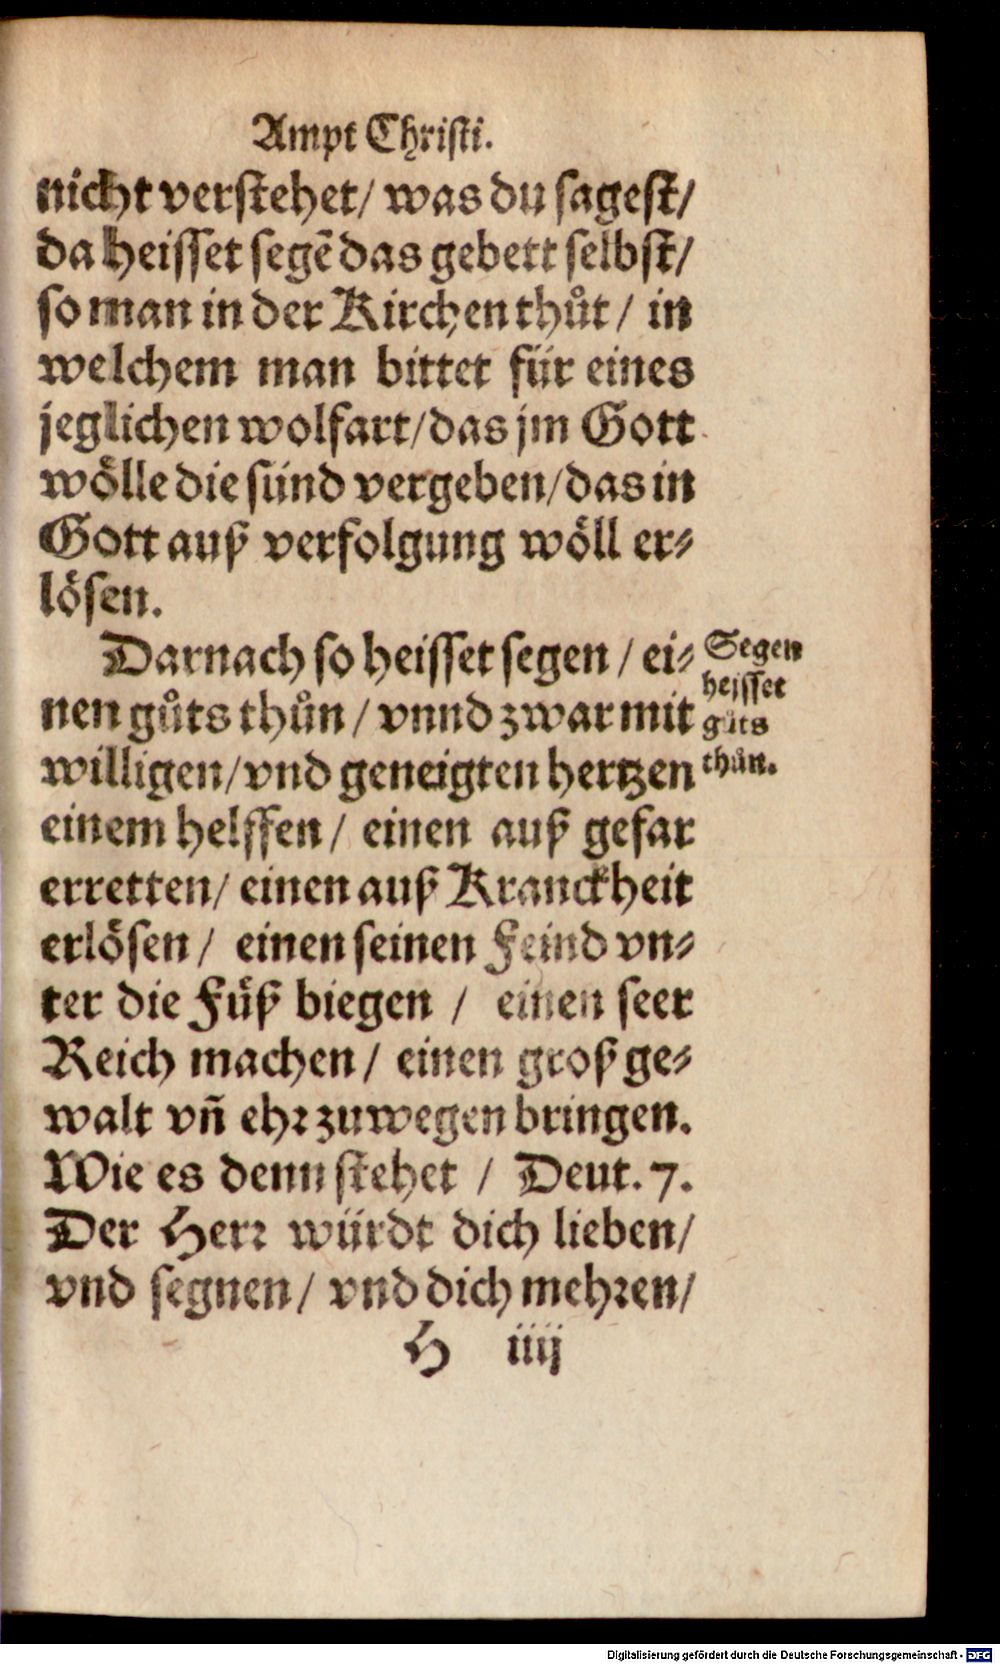 Ampt Christi.
nicht verstehet/ was du sagest/
da heisset segē das gebett selbst/
so man in der Kirchen thůt / in
welchem man bittet für eines
jeglichen wolfart/das jm Gott
wölle die sünd vergeben/das in
Gott auß verfolgung wöll er⸗
lösen.
Darnach so heisset segen / ei⸗
nen gůts thůn / vnnd zwar mit
willigen/vnd geneigten hertzen
einem helffen / einen auß gefar
erretten/ einen auß Kranckheit
erlösen / einen seinen Feind vn⸗
ter die Füß biegen / einen seer
Reich machen / einen groß ge⸗
walt vñ ehr zuwegen bringen.
Wie es denn stehet / Deut. 7.
Der Herr würdt dich lieben/
vnd segnen / vnd dich mehren/
H iiij
Segen
heisset
gůts
thůn.
Digitalisierung gefördert durch die Deutsche Forschungsgemeinschaft - DFG